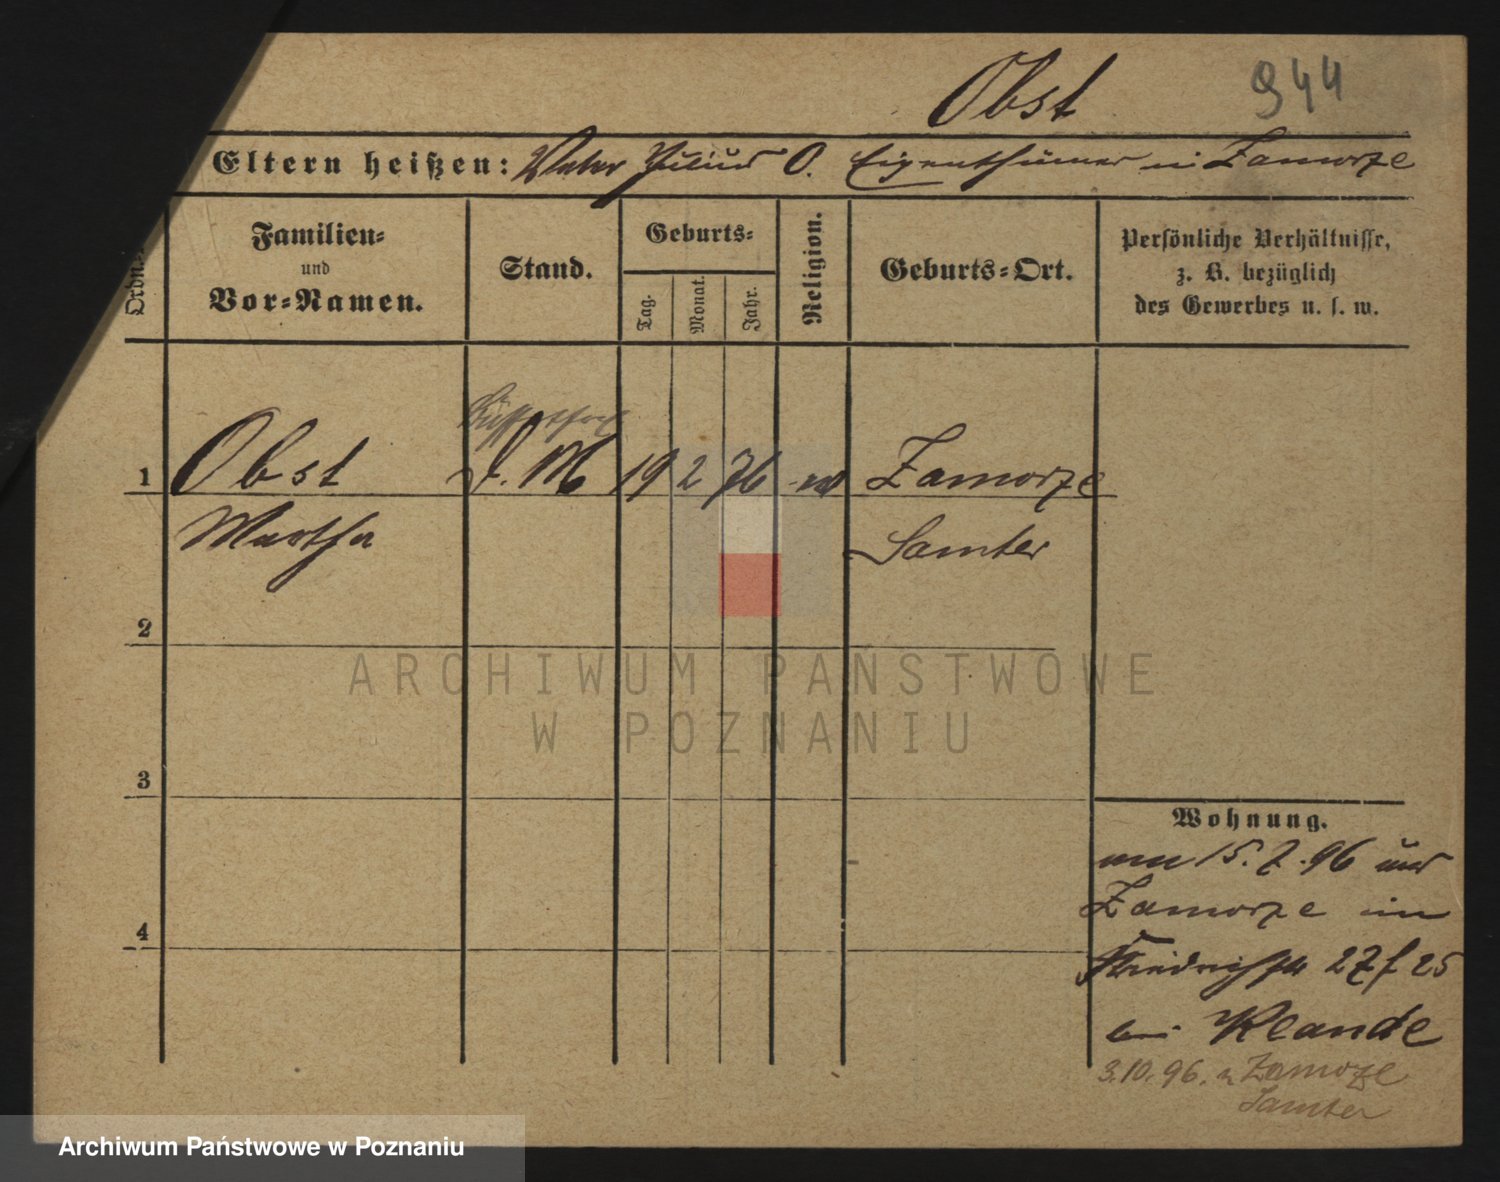 Obst
944
Eltern heißen: Vater Julius O. Eigenthümer in Zamorze
Ordn.-
Familien-
und
Vor-Namen.
Stand.
Geburts-
Tag.
Monat.
Jahr.
Religion.
Geburts-Ort.
Persönliche Verhältnisse,
z. B. bezüglich
des Gewerbes u. s. w.
1
Obst
D. M
19 2 76 ev
Zamorze
Martha
Samter
2
ARCHIWUM PAŃSTWOWE
W POZNANIU
3
Wohnung.
am 15. 7. 96 aus
Zamorze in
4
Friedrichstr 27 f 25
bei
3.10.96. n Zamorze
Samter
Archiwum Państwowe w Poznaniu